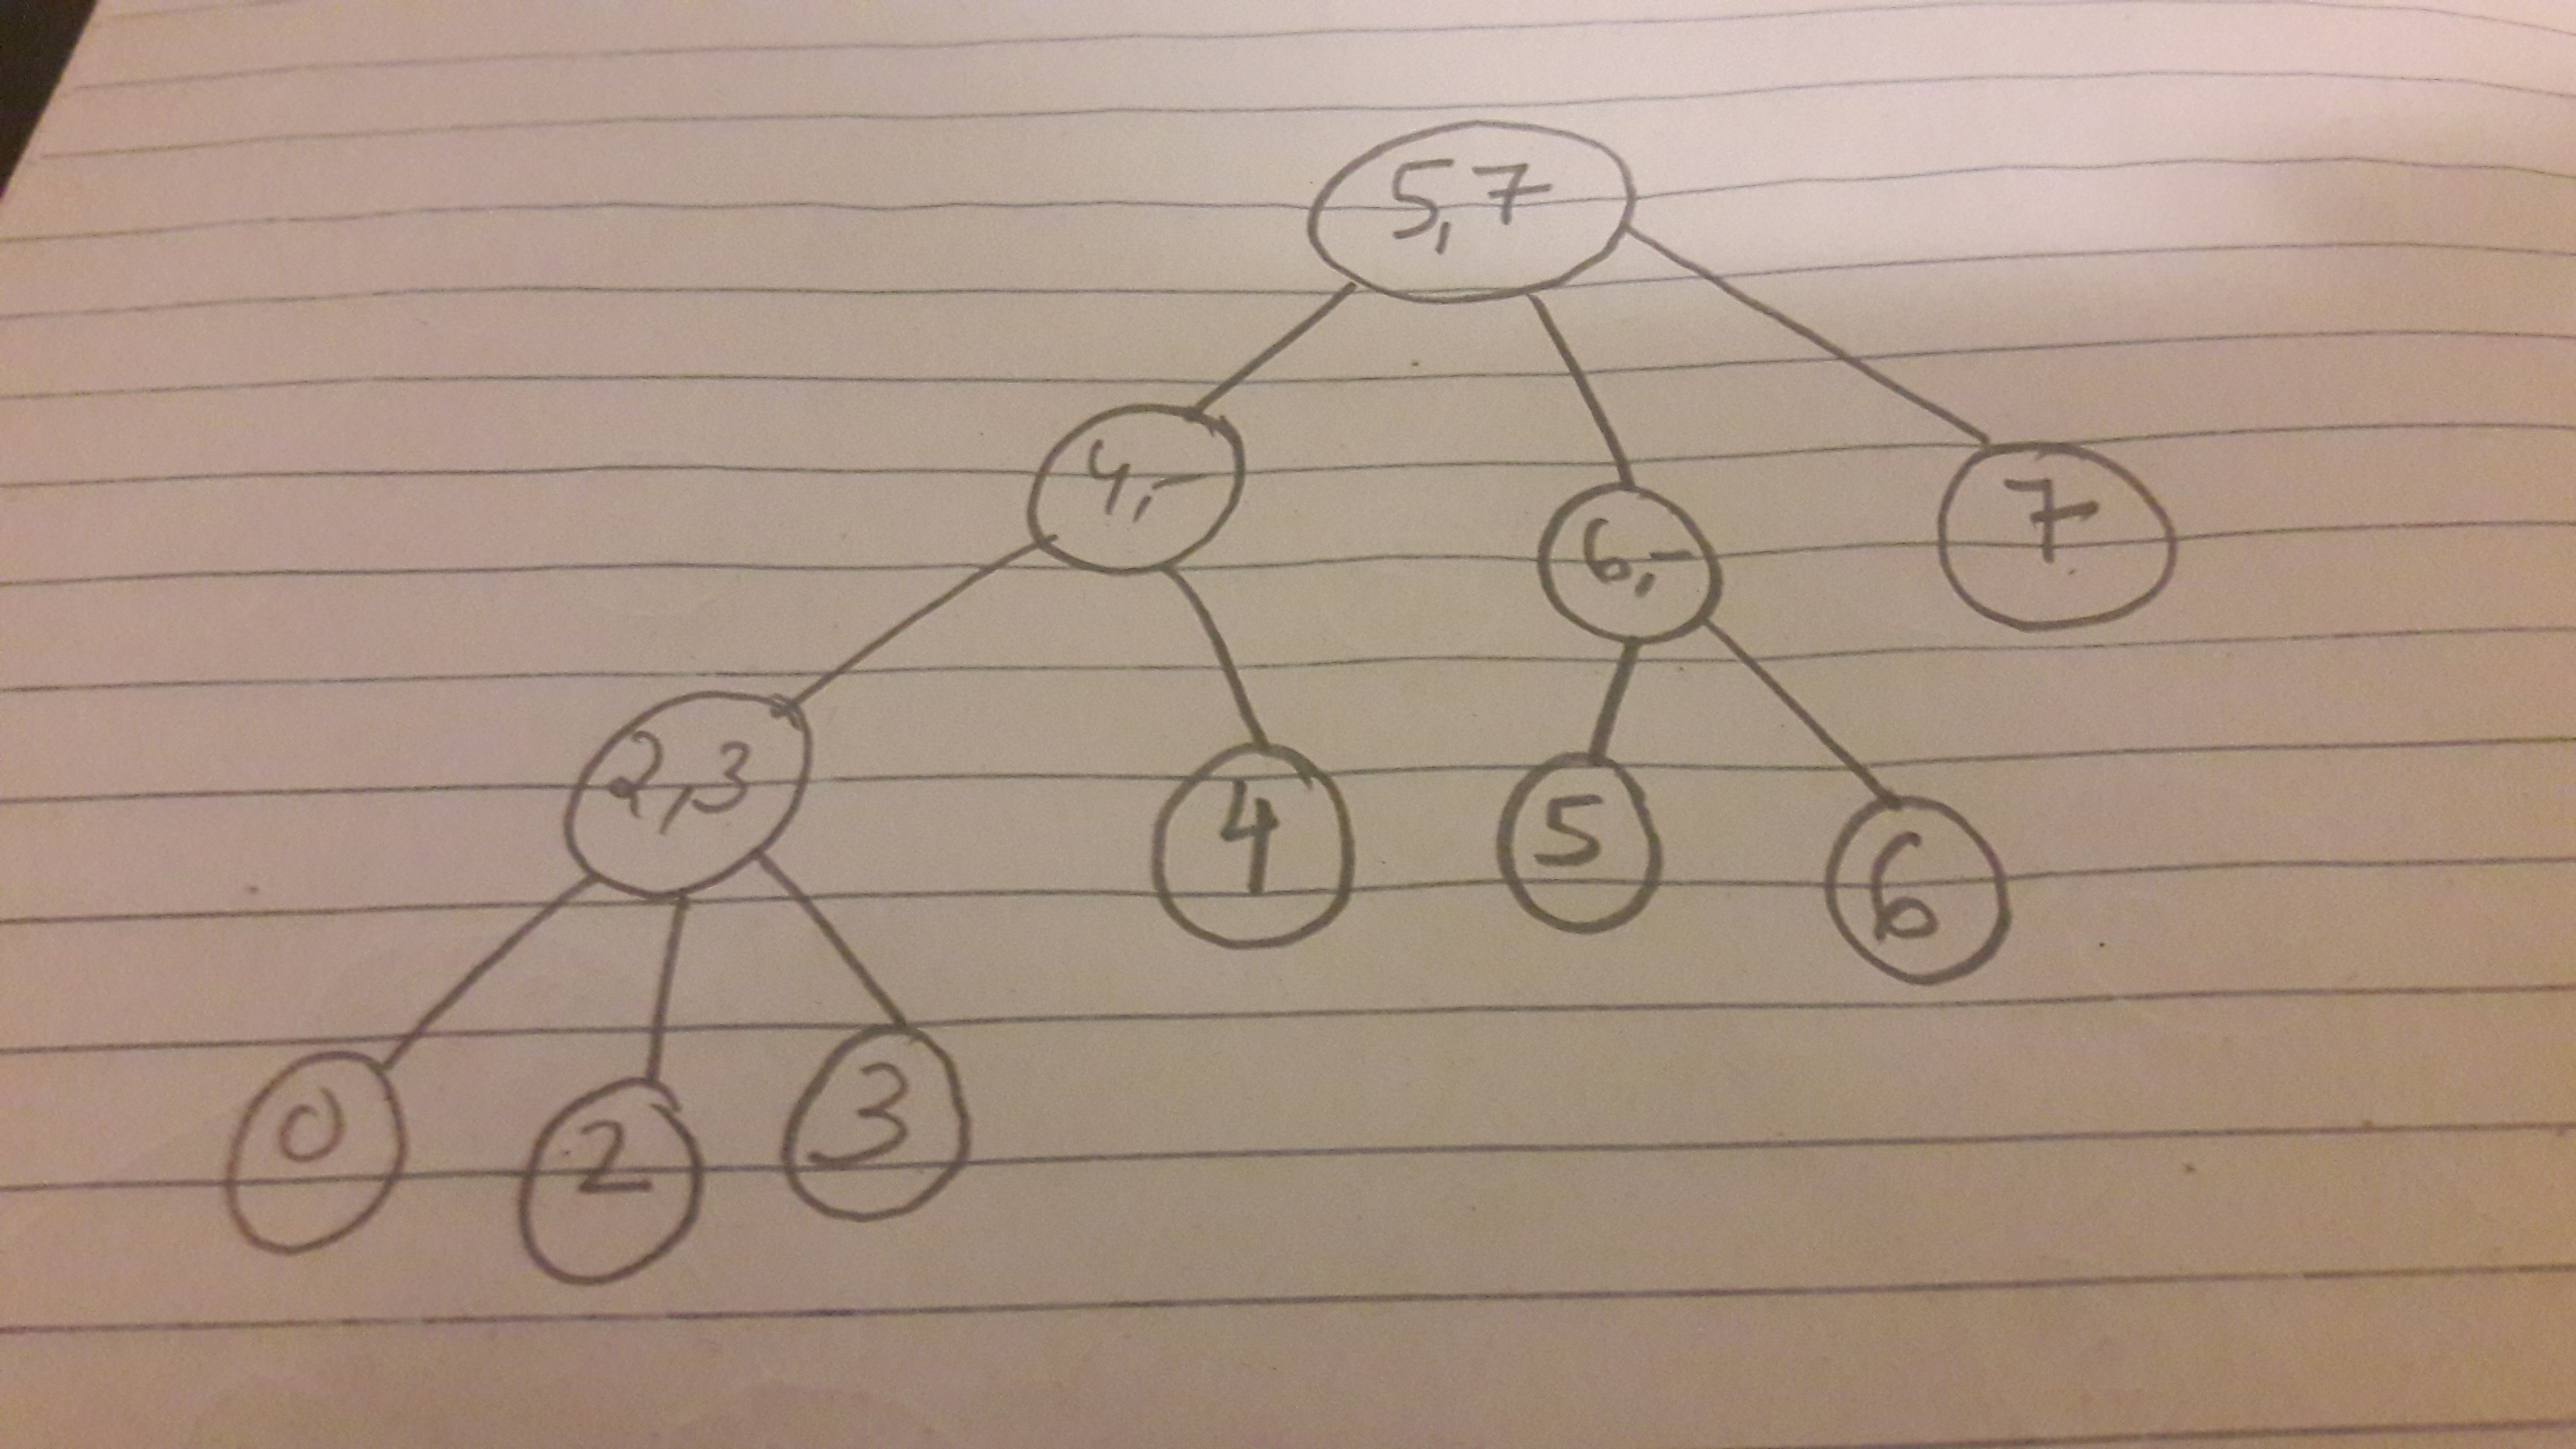 5,7
4,-
6,-
7
2,3
4
5
6
0
2
3